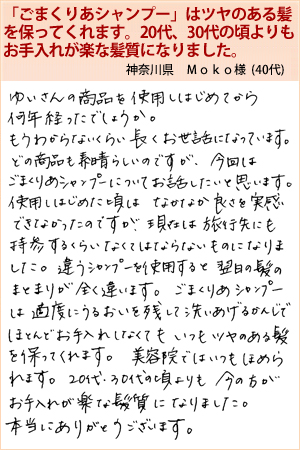 「ごまくりあシャンプー」はツヤのある髪
を保ってくれます。20代、30代の頃よりも
お手入れが楽な髪質になりました。
神奈川県　Ｍｏｋｏ様 (40代)
ゆいさんの商品を使用しはじめてから
何年経ったでしょうか。
もうわからないくらい長くお世話になっています。
どの商品も素晴らしいのですが、今回は
ごまくりあシャンプーについてお話したいと思います。
使用しはじめた頃は なかなか良さを実感
できなかったのですが、現在は旅行先にも
持参するくらいなくてはならないものになりま
した。違うシャンプーを使用すると翌日の髪の
まとまりが全く違います。ごまくりあシャンプー
は適度にうるおいを残して洗いあげるかんじで
ほとんどお手入れしなくても いつもツヤのある髪
を保ってくれます。美容院ではいつもほめら
れます。20代・30代の頃よりも 今の方が
お手入れが楽な髪質になりました。
本当にありがとうございます。